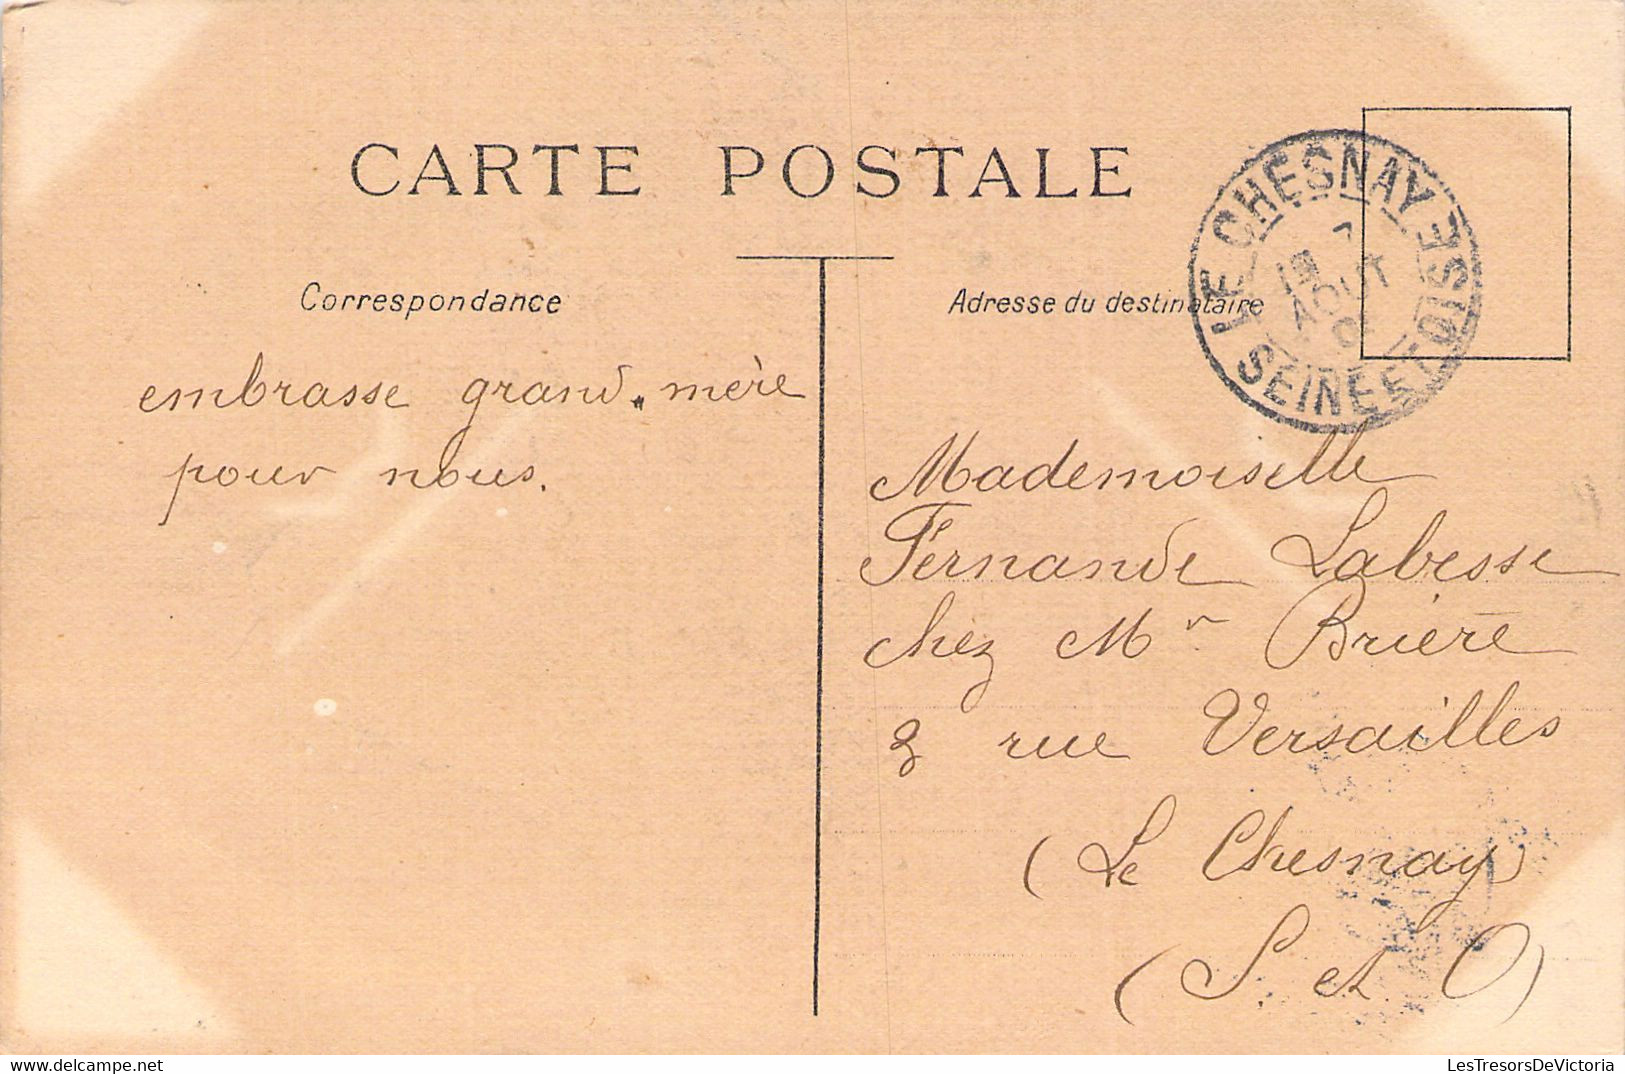 CARTE POSTALE
Correspondance
Adresse du destinataire
LE CHESNAY
SEINE ET OISE
7
19
AOUT
embrasse grand-mère
pour nous.
Mademoiselle
Fernande Labesse
chez Mr Brière
2 rue Versailles
(Le Chesnay)
(S. et O)
LesTresorsDeVictoria
delcampe.net